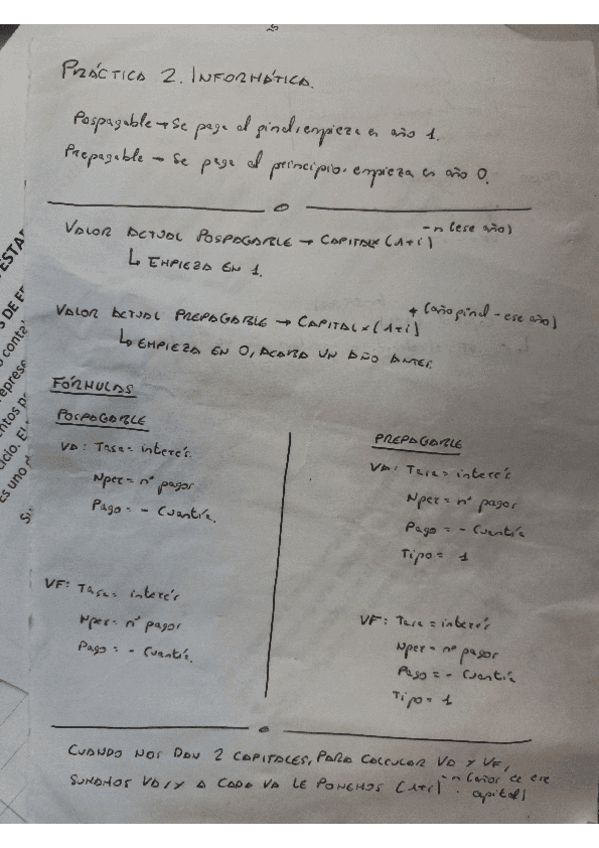 PRÁCTICA 2. INFORMÁTICA.
Pospagable → Se paga al final, empieza en año 1.
Prepagable → Se paga al principio, empieza en año 0.
VALOR ACTUAL POSPAGABLE → CAPITAL x (1+i)^-n (ese año)
↳ EMPIEZA EN 1.
VALOR ACTUAL PREPAGABLE → CAPITAL x (1+i)^+ (año final - ese año)
↳ EMPIEZA EN 0, ACABA UN AÑO ANTES.
FÓRMULAS
POSPAGABLE
VA: Tasa = interés.
Nper = nº pagos
Pago = - Cuantía.
VF: Tasa = interés
Nper = nº pagos
Pago = - Cuantía.
PREPAGABLE
VA: Tasa = interés
Nper = nº pagos
Pago = - Cuantía
Tipo = 1
VF: Tasa = interés
Nper = nº pagos
Pago = - Cuantía
Tipo = 1
CUANDO NOS DAN 2 CAPITALES, PARA CALCULAR VA Y VF,
SUMAMOS VA, Y A CADA VA LE PONEMOS (1+i)^-n (años de ese capital)
ESTA
DE E
conta
eprese
entos p
cicio. El
es uno